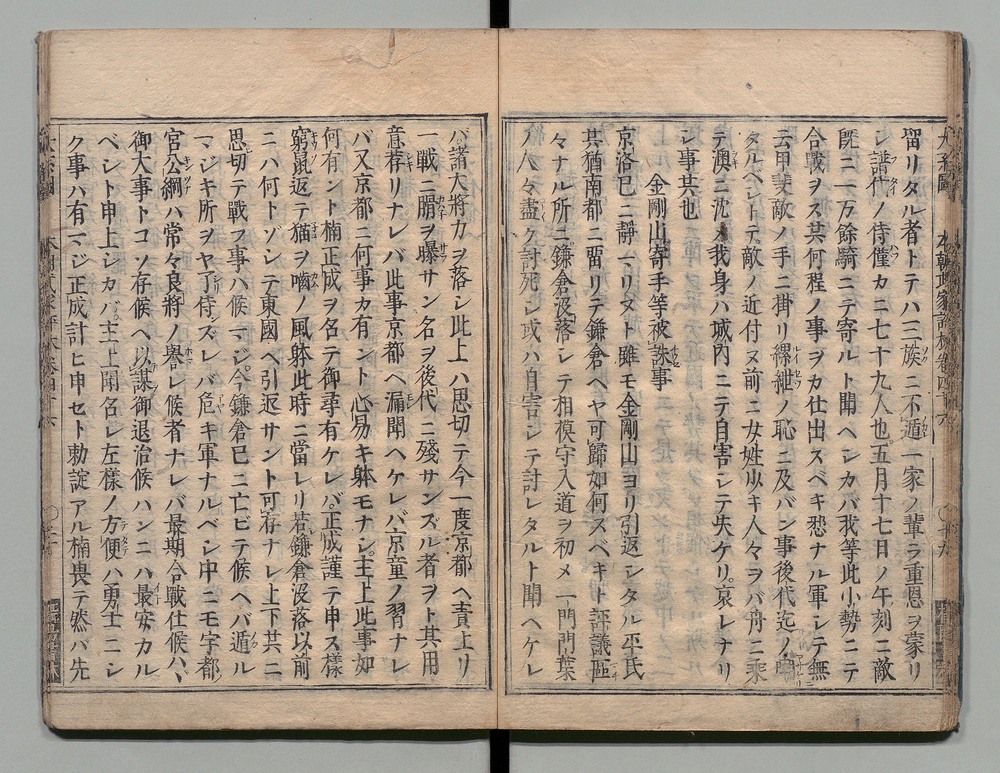 留リタル者トテハ三族ニ不遁一家ノ輩ラ重恩ヲ蒙リ
シ譜代ノ侍僅カニ七十九人也五月十七日ノ午刻ニ敵
既ニ一万餘騎ニテ寄ルト聞ヘシカバ我等此小勢ニテ
合戰ヲス共何程ノ事ヲカ仕出スベキ憖ナル軍シテ無
云甲斐敵ノ手ニ掛リ縲紲ノ恥ニ及バン事後代迄ノ
タルベシトテ敵ノ近付ヌ前ニ女姓少キ人々ヲバ舟ニ乘
テ澳ニ沈メ我身ハ城内ニテ自害シテ失ケリ哀レナリ
シ事共也
金剛山寄手等被誅事
京洛已ニ靜マリヌト雖モ金剛山ヨリ引返シタル平氏
共猶南都ニ畱リテ鎌倉ヘヤ可歸如何スベキト評議區
々マナル所ニ鎌倉没落シテ相模守入道ヲ初メ一門門葉
人々盡ク討死シ或ハ自害シテ討レタルト聞ヘケレ
バ諸大將力ヲ落シ此上ハ思切テ今一度京都ヘ責上リ
一戰ニ屍ヲ曝サン名ヲ後代ニ殘サンズル者ヲト其用
意荐リナレバ此事京都ヘ漏聞ヘケレバ京童ノ習ナレ
バ又京都ニ何事カ有ント心易キ躰モナシ主上此事如
何有ント楠正成ヲ名テ御尋有ケレバ正成謹テ申ス樣
窮鼠返テ猫ヲ嚙ノ風躰此時ニ當レリ若鎌倉没落以前
ニハ何トゾシテ東國ヘ引返サント可存ナレ上下共ニ
思切テ戰フ事ハ候マジ今鎌倉已ニ亡ビテ候ヘバ遁ル
マジキ所ヲヤ了侍ズレバ危キ軍ナルベシ中ニモ宇都
宮公綱ハ常々良將ノ譽レ候者ナレバ最期合戰仕候ハヽ
御大事トコソ存候ヘ以謀御退治候ハンニハ最安カル
ベシト申上シカバ主上聞名レ左樣ノ方便ハ勇士ニシ
ク事ハ有マジ正成計ヒ申セト勅諚アル楠畏テ然バ先